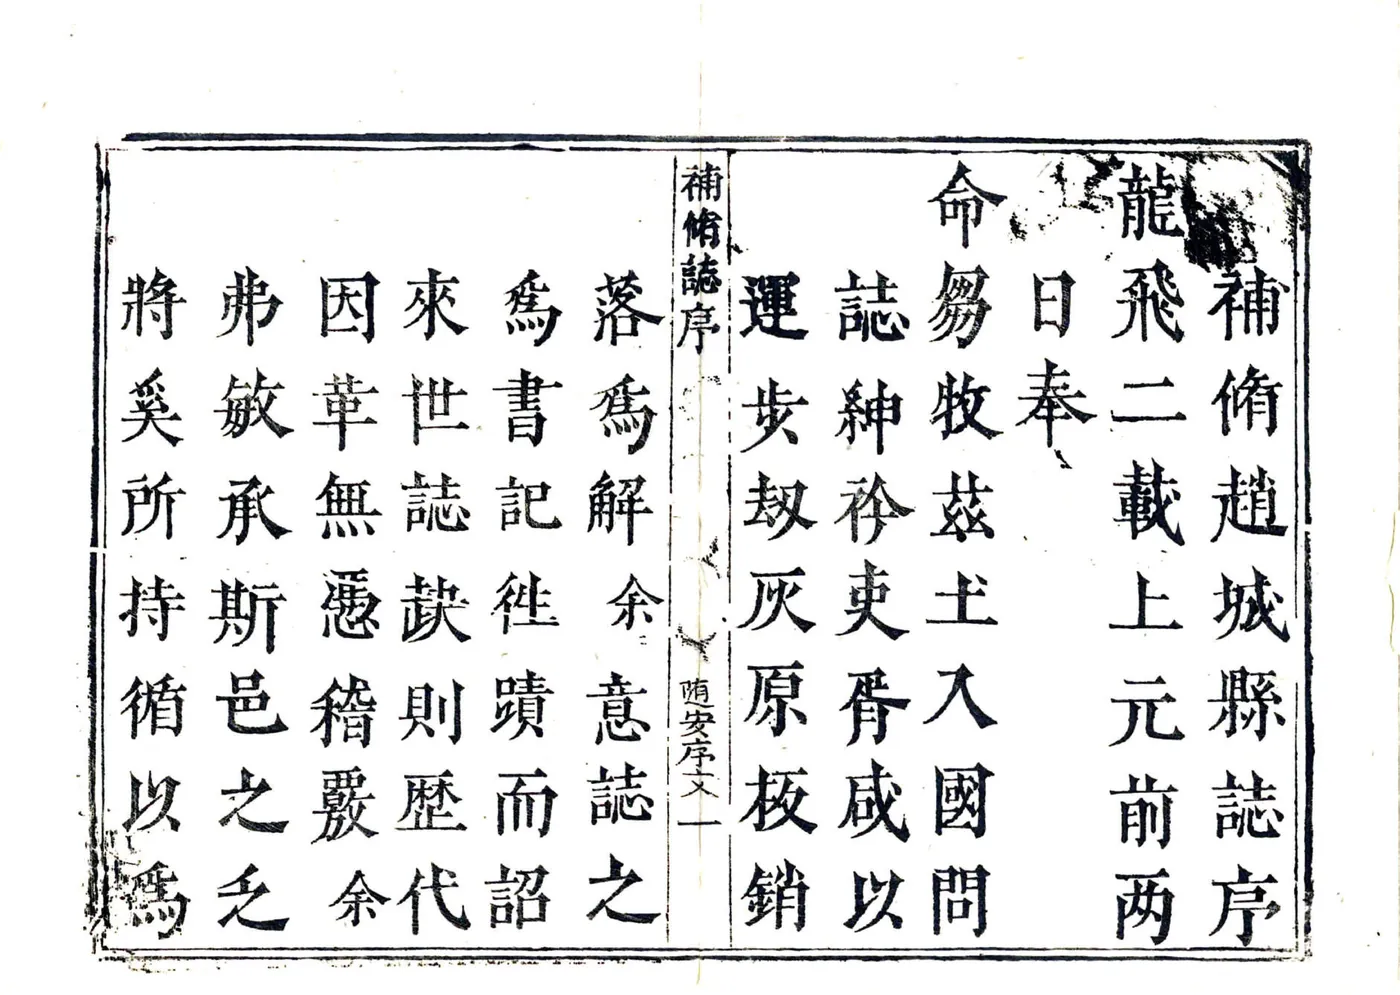 補脩趙城縣誌序
龍飛二載上元前两
日奉
命芻牧茲土入國問
誌紳衿吏胥咸以
運步刼灰原板銷
補脩誌序
随安序文一
落爲解余意誌之
爲書記徃蹟而詔
來世誌缺則歴代
因革無憑稽覈余
弗敏承斯邑之乏
將奚所持循以爲